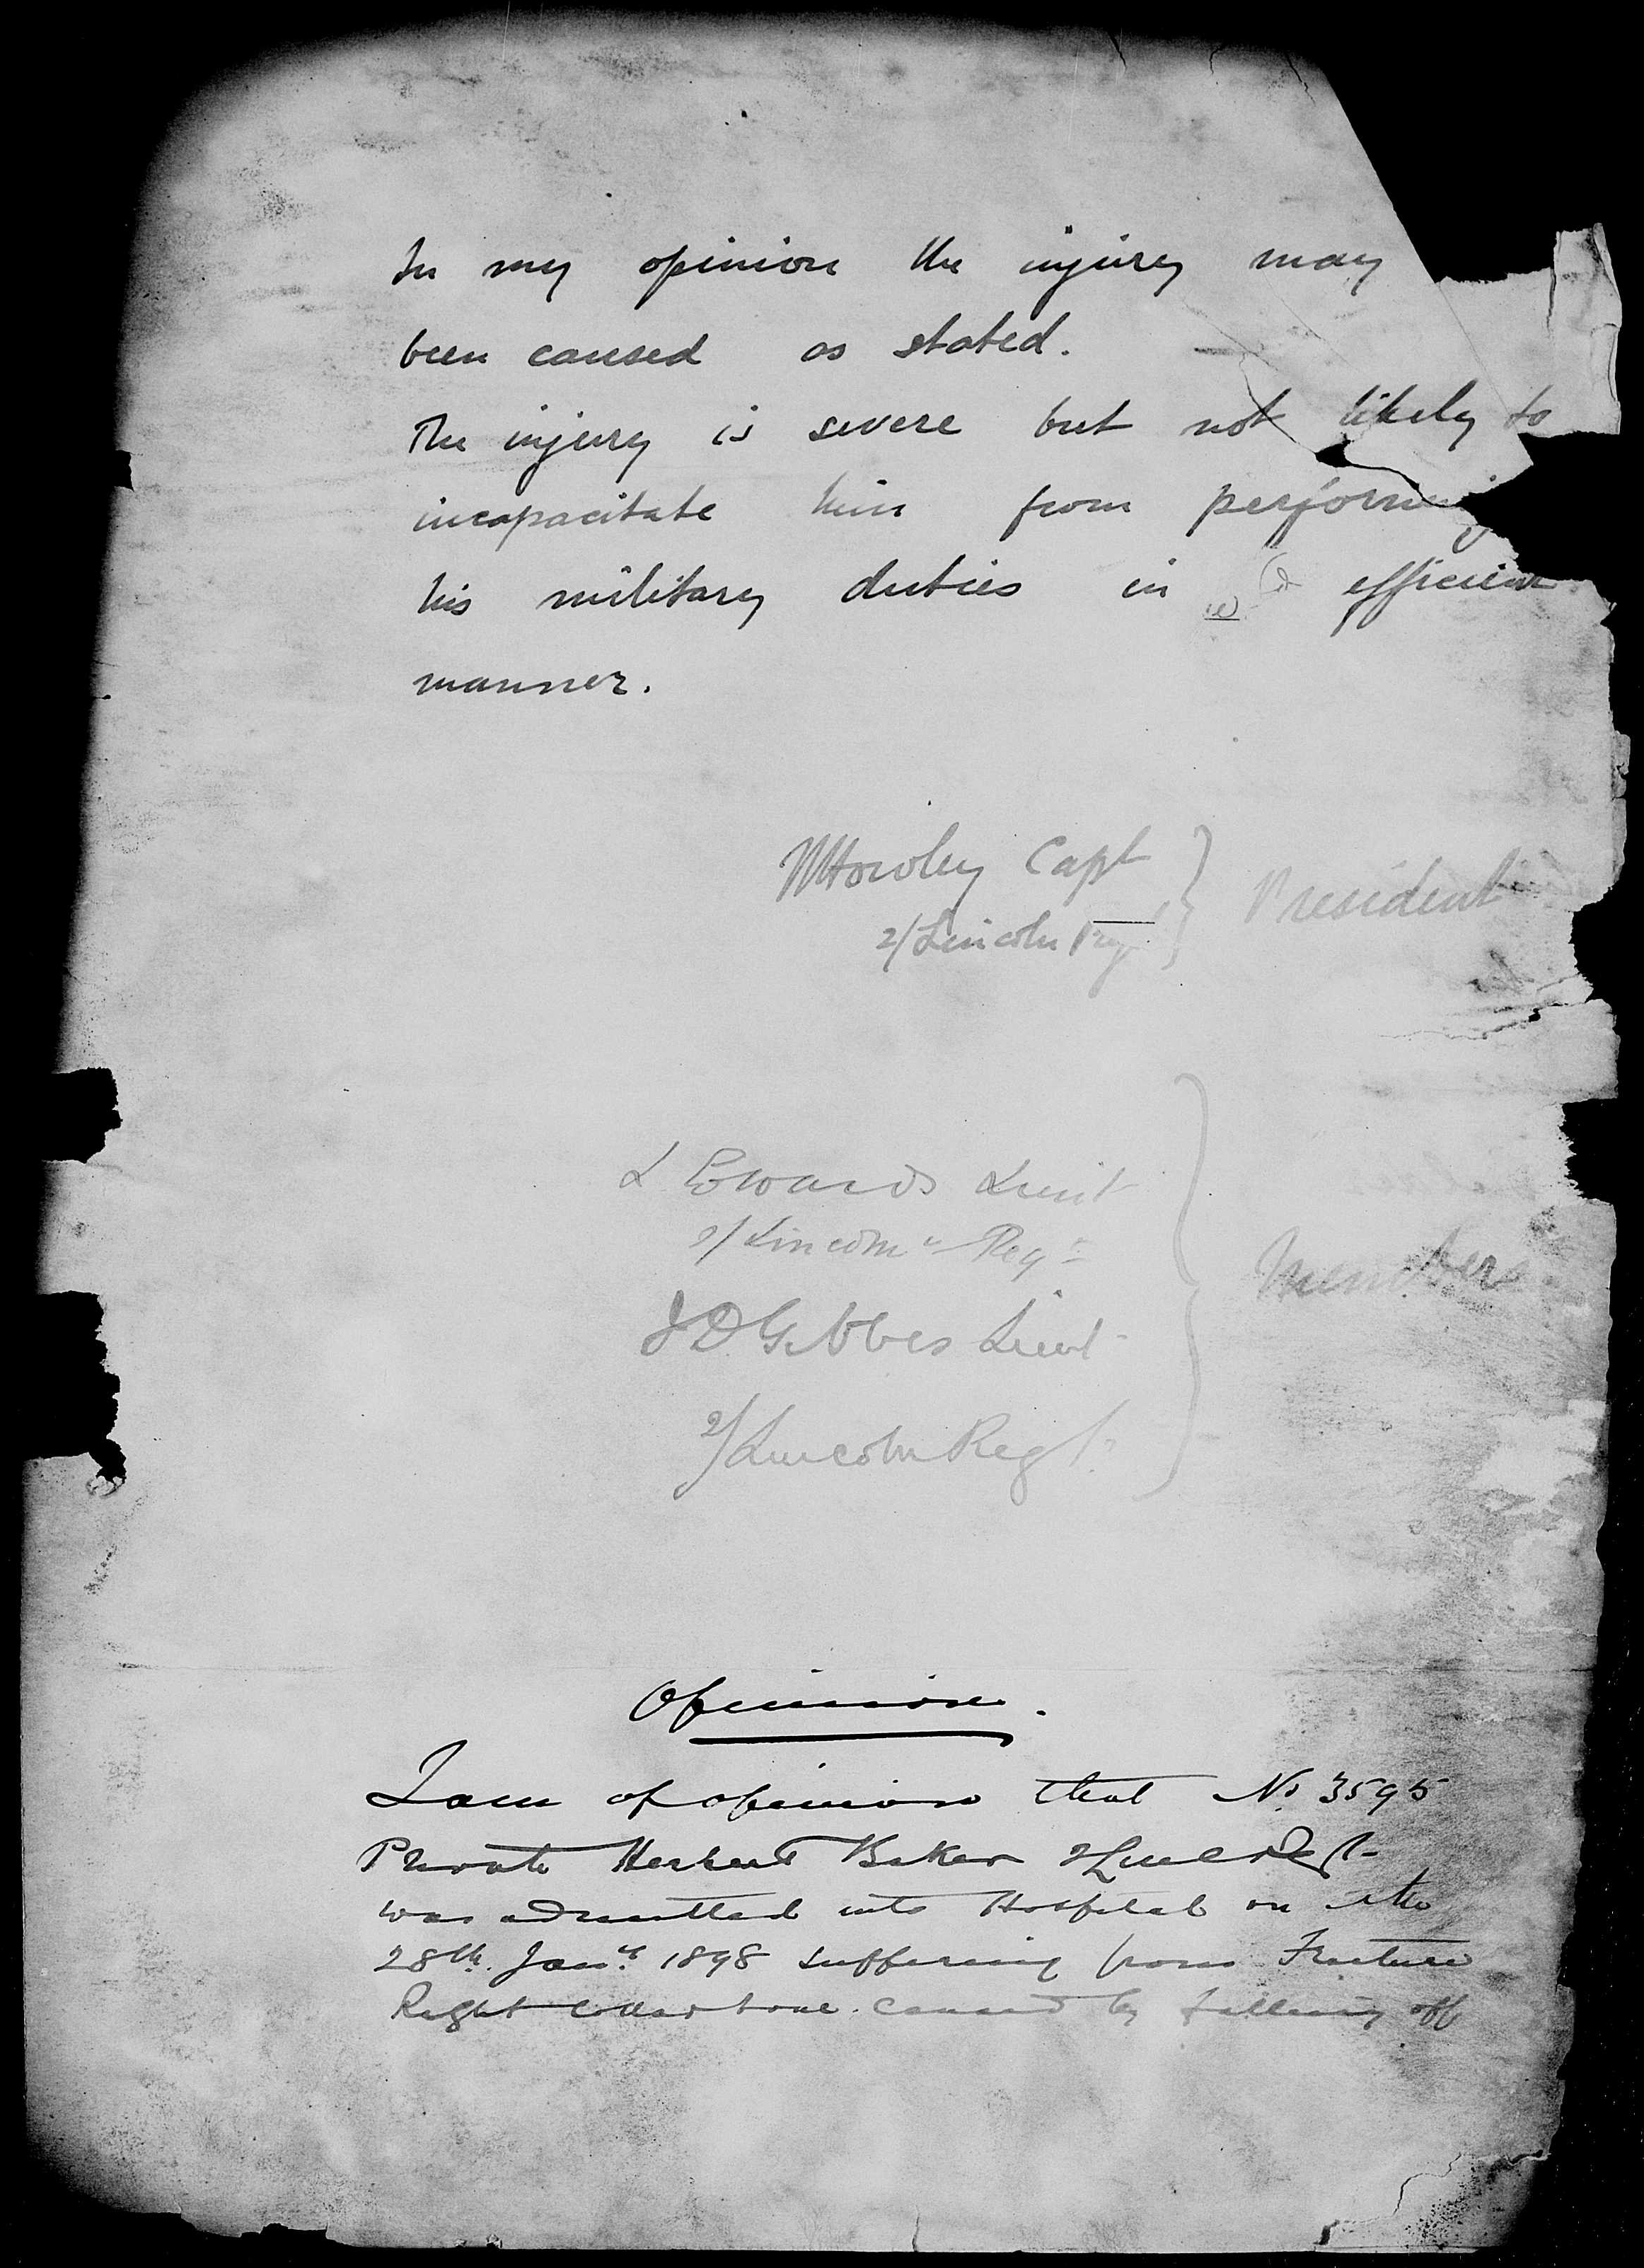 In my opinion the injury may
been caused as stated.
The injury is severe but not likely to
incapacitate him from performing
his military duties in efficient
manner.
Capt
2/Lincoln Regt
President
L Edwards Lieut
2/Lincoln Regt
J D Gibbes Lieut
2/Lincoln Regt.
Members
Opinion.
I am of opinion that No. 3595
Private Herbert Baker 2/Linc Regt
was admitted into Hospital on the
28th Jany 1898 suffering from Fracture
Right Collar bone caused by falling off